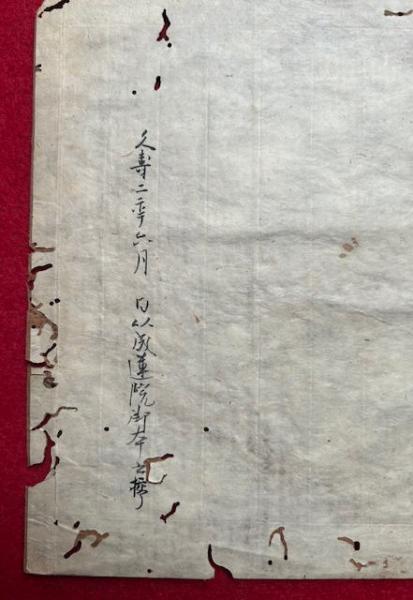 久寿二年六月　日以成蓮院御本書移了